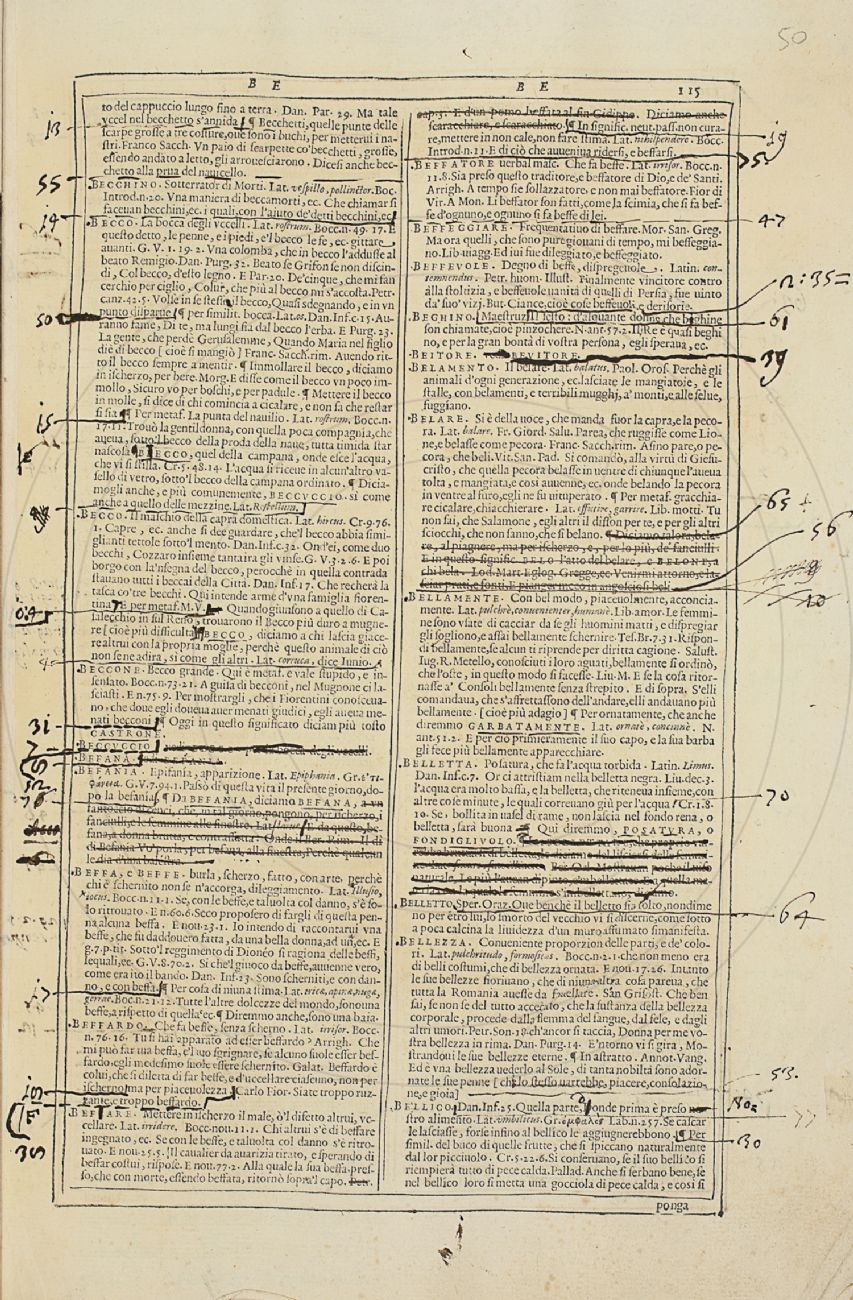 50
B E
B E
115
to del cappuccio lungo fino a terra. Dan. Par. 29. Ma tale
vccel nel becchetto s'annida ¶ Becchetti, quelle punte delle
scarpe grosse a tre costure, oue sono i buchi, per metterui i na-
stri. Franco Sacch. Vn paio di scarpette co' becchetti, grosse,
essendo andato a letto, gli arrouesciarono. Dicesi anche bec-
chetto alla prua del nauicello.
BECCHINO. Sotterrator di Morti. Lat. vespillo, pollinctor. Boc.
Introd. n. 20. Vna maniera di beccamorti, ec. Che chiamar si
faceuan becchini, ec. i quali, con l'aiuto de' detti becchini, ec.
BECCO. La bocca degli vccelli. Lat. rostrum. Bocc. n. 49. 17. E
questo detto, le penne, e i piedi, e'l becco le fe, ec. gittare
auanti. G. V. 1. 19. 2. Vna colomba, che in becco l'addusse al
beato Remigio. Dan. Purg. 32. Beato se Grifon se non discin-
di, Col becco, d'esto legno. E Par. 20. De' cinque, che mi fan
cerchio per ciglio, Colui, che più al becco mi s'accosta. Petr.
canz. 42. 5. Volse in se stessa il becco, Quasi sdegnando, e in vn
punto disparse ¶ per similit. bocca. Lat. os. Dan. Inf. c. 15. Au-
ranno fame, Di te, ma lungi fia dal becco l'erba. E Purg. 23.
La gente, che perdè Gerusalemme, Quando Maria nel figlio
diè di becco [cioè si mangiò] Franc. Sacch. rim. Auendo rit-
to il becco sempre a mentir. ¶ Immollare il becco, diciamo
in ischerzo, per bere. Morg. E disse come il becco vn poco im-
mollo, Sicuro vo per boschi, e per padule. ¶ Mettere il becco
in molle, si dice di chi comincia a cicalare, e non sa che restar
si sia ¶ Per metaf. La punta del nauilio. Lat. rostrum. Bocc. n.
17. 11. Trouò la gentil donna, con quella poca compagnia, che
aueua, sotto'l becco della proda della naue, tutta timida star
nascosa BECCO, quel della campana, onde esce l'acqua,
che vi si stilla. Cr. 5. 48. 14. L'acqua si riceue in alcun'altro va-
sello di vetro, sotto'l becco della campana ordinato. ¶ Dicia-
mogli anche, e più comunemente, BECCVCCIO. sì come
anche a quello delle mezzine. Lat. Rostellum.
BECCO. Il maschio della capra domestica. Lat. hircus. Cr. 9. 76.
1. Capre, ec. anche si dee guardare, che'l becco abbia simi-
glianti tettole sotto'l mento. Dan. Inf. c. 32. On d'ei, come duo
becchi, Cozzaro insieme tantaira gli vinse. G. V. 3. 2. 6. E poi
borgo con la'nsegna del becco, perocchè in quella contrada
stauano tutti i beccai della Città. Dan. Inf. 17. Che recherà la
tasca co' tre becchi. Qui intende arme d'vna famiglia fioren-
tina E per metaf. M. V. Quando giunsono a quello di Ca-
salecchio in sul Reno, trouarono il Becco più duro a mugne-
re [cioè più difficultà] BECCO, diciamo a chi lascia giace-
re altrui con la propria moglie, perchè questo animale di ciò
non se ne adira, sì come gli altri. Lat. corruca, dice Iunio.
BECCONE. Becco grande. Qui è metaf. e vale stupido, e in-
sensato. Bocc. n. 73. 21. A guisa di becconi, nel Mugnone ci la-
sciasti. E n. 75. 9. Per mostrargli, che i Fiorentini conosceua-
no, che doue egli doueua auer menati giudici, egli aueua me-
nati becconi ¶ Oggi in questo significato diciam più tosto
CASTRONE.
BECCVCCIO degli vccelli.
BEFANA
BEFANIA. Epifania, apparizione. Lat. Epiphania. Gr.
G. V. 7. 94. 1. Passò di questa vita il presente giorno, do-
po la befania. ¶ DA BEFANIA, diciamo BEFANA, a vn
fantoccio di cenci, che, in tal giorno, pongono, per ischerzo, i
fanciulli, e le femmine alle finestre. E da questo, be-
fana, a donna brutta, e contraffatta. Onde il Ber. Rim. Il dì
di Befania Vò porla, per befana, alla finestra, Perchè qualcun
le dia d'una balestra.
BEFFA, e BEFFE. burla, scherzo, fatto, con arte, perchè
chi è schernito non se n'accorga, dileggiamento. Lat. Illusio,
iocus. Bocc. n. 11. 1. Se, con le beffe, e taluolta col danno, s'è so-
lo ritrouato. E n. 60. 6. Seco proposero di fargli di questa pen-
na alcuna beffa. E nou. 23. 1. Io intendo di raccontarui vna
beffe, che fu daddouero fatta, da vna bella donna, ad un, ec. E
g. 7. p. tit. Sotto'l reggimento di Dionèo si ragiona delle beffi,
sequali, ec. G. V. 8. 70. 2. Sì che'l giuoco da beffe, auuenne vero,
come era ito il bando. Dan. Inf. 23. Sono scherniti, e con dan-
no, e con beffa ¶ Per cosa di niuna stima. Lat. trica, apina, nuga,
gerrae. Bocc. n. 21. 12. Tutte l'altre dolcezze del mondo, sono una
beffa, a rispetto di quella 'ec. ¶ Diremmo anche, sono una baia.
BEFFARDO. Che fa beffe, senza scherno. Lat. irrisor. Bocc.
n. 76. 16. Tu sì hai apparato ad esser beffardo? Arrigh. Che
mi può far tua beffa, e'l tuo sgrignare, se alcuno suole esser bef-
fardo, egli medesimo suole essere schernito. Galat. Beffardo è
colui, che si diletta di far beffe, e d'uccellare ciascuno, non per
ischerno ma per piaceuolezza Carlo Fior. Siate troppo ruz-
zante, e troppo beffardo.
BEFFARE. Mettere in ischerzo il male, o'l difetto altrui, vc-
cellare. Lat. irridere. Bocc. nou. 11. 1. Chi altrui s'è di beffare
ingegnato, ec. Se con le beffe, e taluolta col danno s'è ritro-
uato. E nou. 25. 5. Il caualier da auarizia tirato, e sperando di
beffar costui, rispose. E nou. 77. 2. Alla quale la sua beffa, pres-
so, che con morte, essendo beffata, ritornò sopra'l capo. Petr.
cap. 5. E d'un pomo beffata al fin Cidippe. Diciamo anche
scaracchiare, e scaracchiato ¶ In signific. neut. pass. non cura-
re, mettere in non cale, non fare stima. Lat. nihilpendere. Bocc.
Introd. n. 11. E di ciò che auueniua ridersi, e beffarsi.
BEFFATORE verbal masc. Che fa beffe. Lat. irrisor. Bocc. n.
11. 8. Sia preso questo traditore, e beffatore di Dio, e de' Santi.
Arrigh. A tempo sie sollazzatore, e non mai beffatore. Fior di
Vir. A Mon. Li beffator son fatti, come la scimia, che si fa bef-
fe d'ognuno, e ognuno si fa beffe di lei.
BEFFEGGIARE. Frequentatiuo di beffare. Mor. San. Greg.
Ma ora quelli, che sono pure giouani di tempo, mi beffeggia-
no. Lib. uiagg. Ed iui fue dileggiato, e beffeggiato.
BEFFEVOLE. Degno di beffe, dispregeuole. Latin. con-
temnendus. Petr. huom. Illust. Finalmente vincitore contro
alla stoltizia, e beffeuole uanità di quelli di Persia, fue uinto
da' suo' vizj. But. Ciance, cioè cose beffeuoli, e derisorie.
BEGHINO. Maestruz. Il testo: d'alquante donne che beghine
son chiamate, cioè pinzochere. N. ant. 57. 2. Il Re è quasi beghi
no, e per la gran bontà di vostra persona, egli speraua, ec.
BEITORE. BEVITORE.
BELAMENTO. Il belare. Lat. balatus. Paol. Oros. Perchè gli
animali d'ogni generazione, ec. lasciate le mangiatoie, e le
stalle, con belamenti, e terribili mugghj, a' monti, e alle selue,
fuggiano.
BELARE. Si è della uoce, che manda fuor la capra, e la peco-
ra. Lat. balare. Fr. Giord. Salu. Parea, che ruggisse come Lio-
ne, e belasse come pecora. Franc. Sacch. rim. Asino pare, o pe-
cora, che beli. Vit. San. Pad. Si comandò, alla virtù di Giesu-
cristo, che quella pecora belasse in uentre di chiunque l'aueua
tolta, e mangiata, e così auuenne, ec. onde belando la pecora
in ventre al furo, egli ne fu uituperato. ¶ Per metaf. gracchia-
re cicalare, chiacchierare. Lat. effutire, garrire. Lib. motti. Tu
non sai, che Salamone, egli altri il disson per te, e per gli altri
sciocchi, che non sanno, che si belano. ¶ Diciamo talora, bela-
re, al piagnere, ma per ischerzo, e, per lo più, de' fanciulli.
E in questo signific. BELO l'atto del belare, e BELONE, a
chi bela. Lod. Mart. Eglog. Gregge, ec. Venirmi attorno, e la-
sciar prati, e fonti, E pianger meco in angosciosi beli.
BELLAMENTE. Con bel modo, piaceuolmente, acconcia-
mente. Lat. pulchrè, conuenienter, humanè. Lib. amor. Le femmi-
ne sono vsate di cacciar da se gli huomini matti, e dispregiar
gli sogliono, e assai bellamente schernire. Tes. Br. 7. 31. Rispon-
di bellamente, se alcun ti riprende per diritta cagione. Salust.
Iug. R. Metello, conosciuti i loro aguati, bellamente si ordinò,
che l'oste, in questo modo si facesse. Liu. M. E se la cosa ritor-
nasse a' Consoli bellamente senza strepito. E di sopra. S'elli
comandaua, che s'affrettassono dell'andare, elli andauano più
bellamente. [cioè più adagio] ¶ Per ornatamente, che anche
diremmo GARBATAMENTE. Lat. ornatè, concinnè. N.
ant. 51. 2. E per ciò primieramente il suo capo, e la sua barba
gli fece più bellamente apparecchiare.
BELLETTA. Posatura, che fa l'acqua torbida. Latin. Limus.
Dan. Inf. c. 7. Or ci attristiam nella belletta negra. Liu. dec. 3.
l'acqua era molto bassa, e la belletta, che riteneua insieme, con
altre cose minute, le quali correuano giù per l'acqua Cr. 1. 8.
10. Se, bollita in uasel di rame, non lascia nel fondo rena, o
belletta, sarà buona Qui diremmo, POSATVRA, o
FONDIGLIVOLO.
BELLETTO. Sper. Oraz. Que benchè il belletto sia solto, nondime
no per ètro lui, lo smorto del vecchio vi si discerne, come sotto
a poca calcina la liuidezza d'un muro affumato si manifesta.
BELLEZZA. Conueniente proporzion delle parti, e de' colo-
ri. Lat. pulchritudo, formositas. Bocc. n. 2. 1. che non meno era
di belli costumi, che di bellezza ornata. E nou. 17. 26. Intanto
le sue bellezze fioriuano, che di niun'altra cosa pareua, che
tutta la Romania auesse da fauellare. San Grisost. Che ben
sai, se non se del tutto accecato, che la sustanza della bellezza
corporale, procede dalla flemma del sangue, dal fele, e dagli
altri umori. Petr. Son. 18. ch'ancor si taccia, Donna per me vo-
stra bellezza in rima. Dan. Purg. 14. E'ntorno vi si gira, Mo-
strandoui le sue bellezze eterne. ¶ In astratto. Annot. Vang.
Ed è vna bellezza uederlo al Sole, di tanta nobiltà sono ador-
nate le sue penne [che lo stesso uarrebbe, piacere, consolazio-
ne, e gioia]
BELLICO. Dan. Inf. 25. Quella parte, onde prima è preso no-
stro alimento. Lat. vmbilicus. Gr. ὀμφαλὸς Lab. n. 257. Se cascar
le lasciasse, forse infino al bellico le aggiugnerebbono. ¶ Per
simil. del buco di quelle frutte, che si spiccano naturalmente
dal lor picciuolo. Cr. 5. 22. 6. Si conseruano, se il suo bellico si
riempierà tutto di pece calda. Pallad. Anche si serbano bene, se
nel bellico loro si metta una gocciola di pece calda, e così si
ponga
13
55
14
50
15
31
7
76
17
18
38
19
5
47
n: 35=
61
39
65
56
10
70
64
53.
30